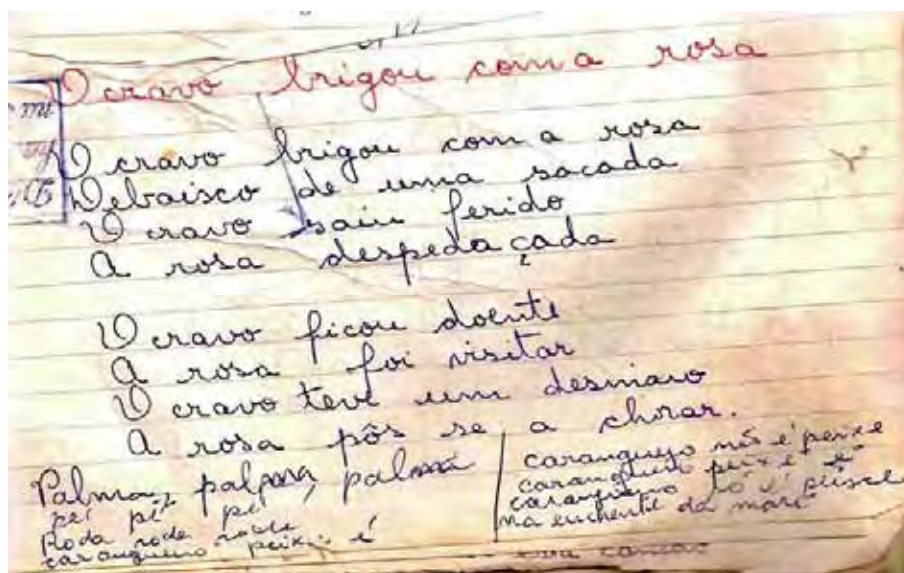 O cravo brigou com a rosa
O cravo brigou com a rosa
Debaisco de uma sacada
O cravo saiu ferido
A rosa despedaçada
O cravo ficou doente
A rosa foi visitar
O cravo teve um desmaio
A rosa pôs se a chorar.
Palma, palma, palma
pé pé pé
Roda roda roda
caranguero peixe é
caranguejo não é peixe
caranguero peixe é
caranguero só é peisce
na enchente da maré